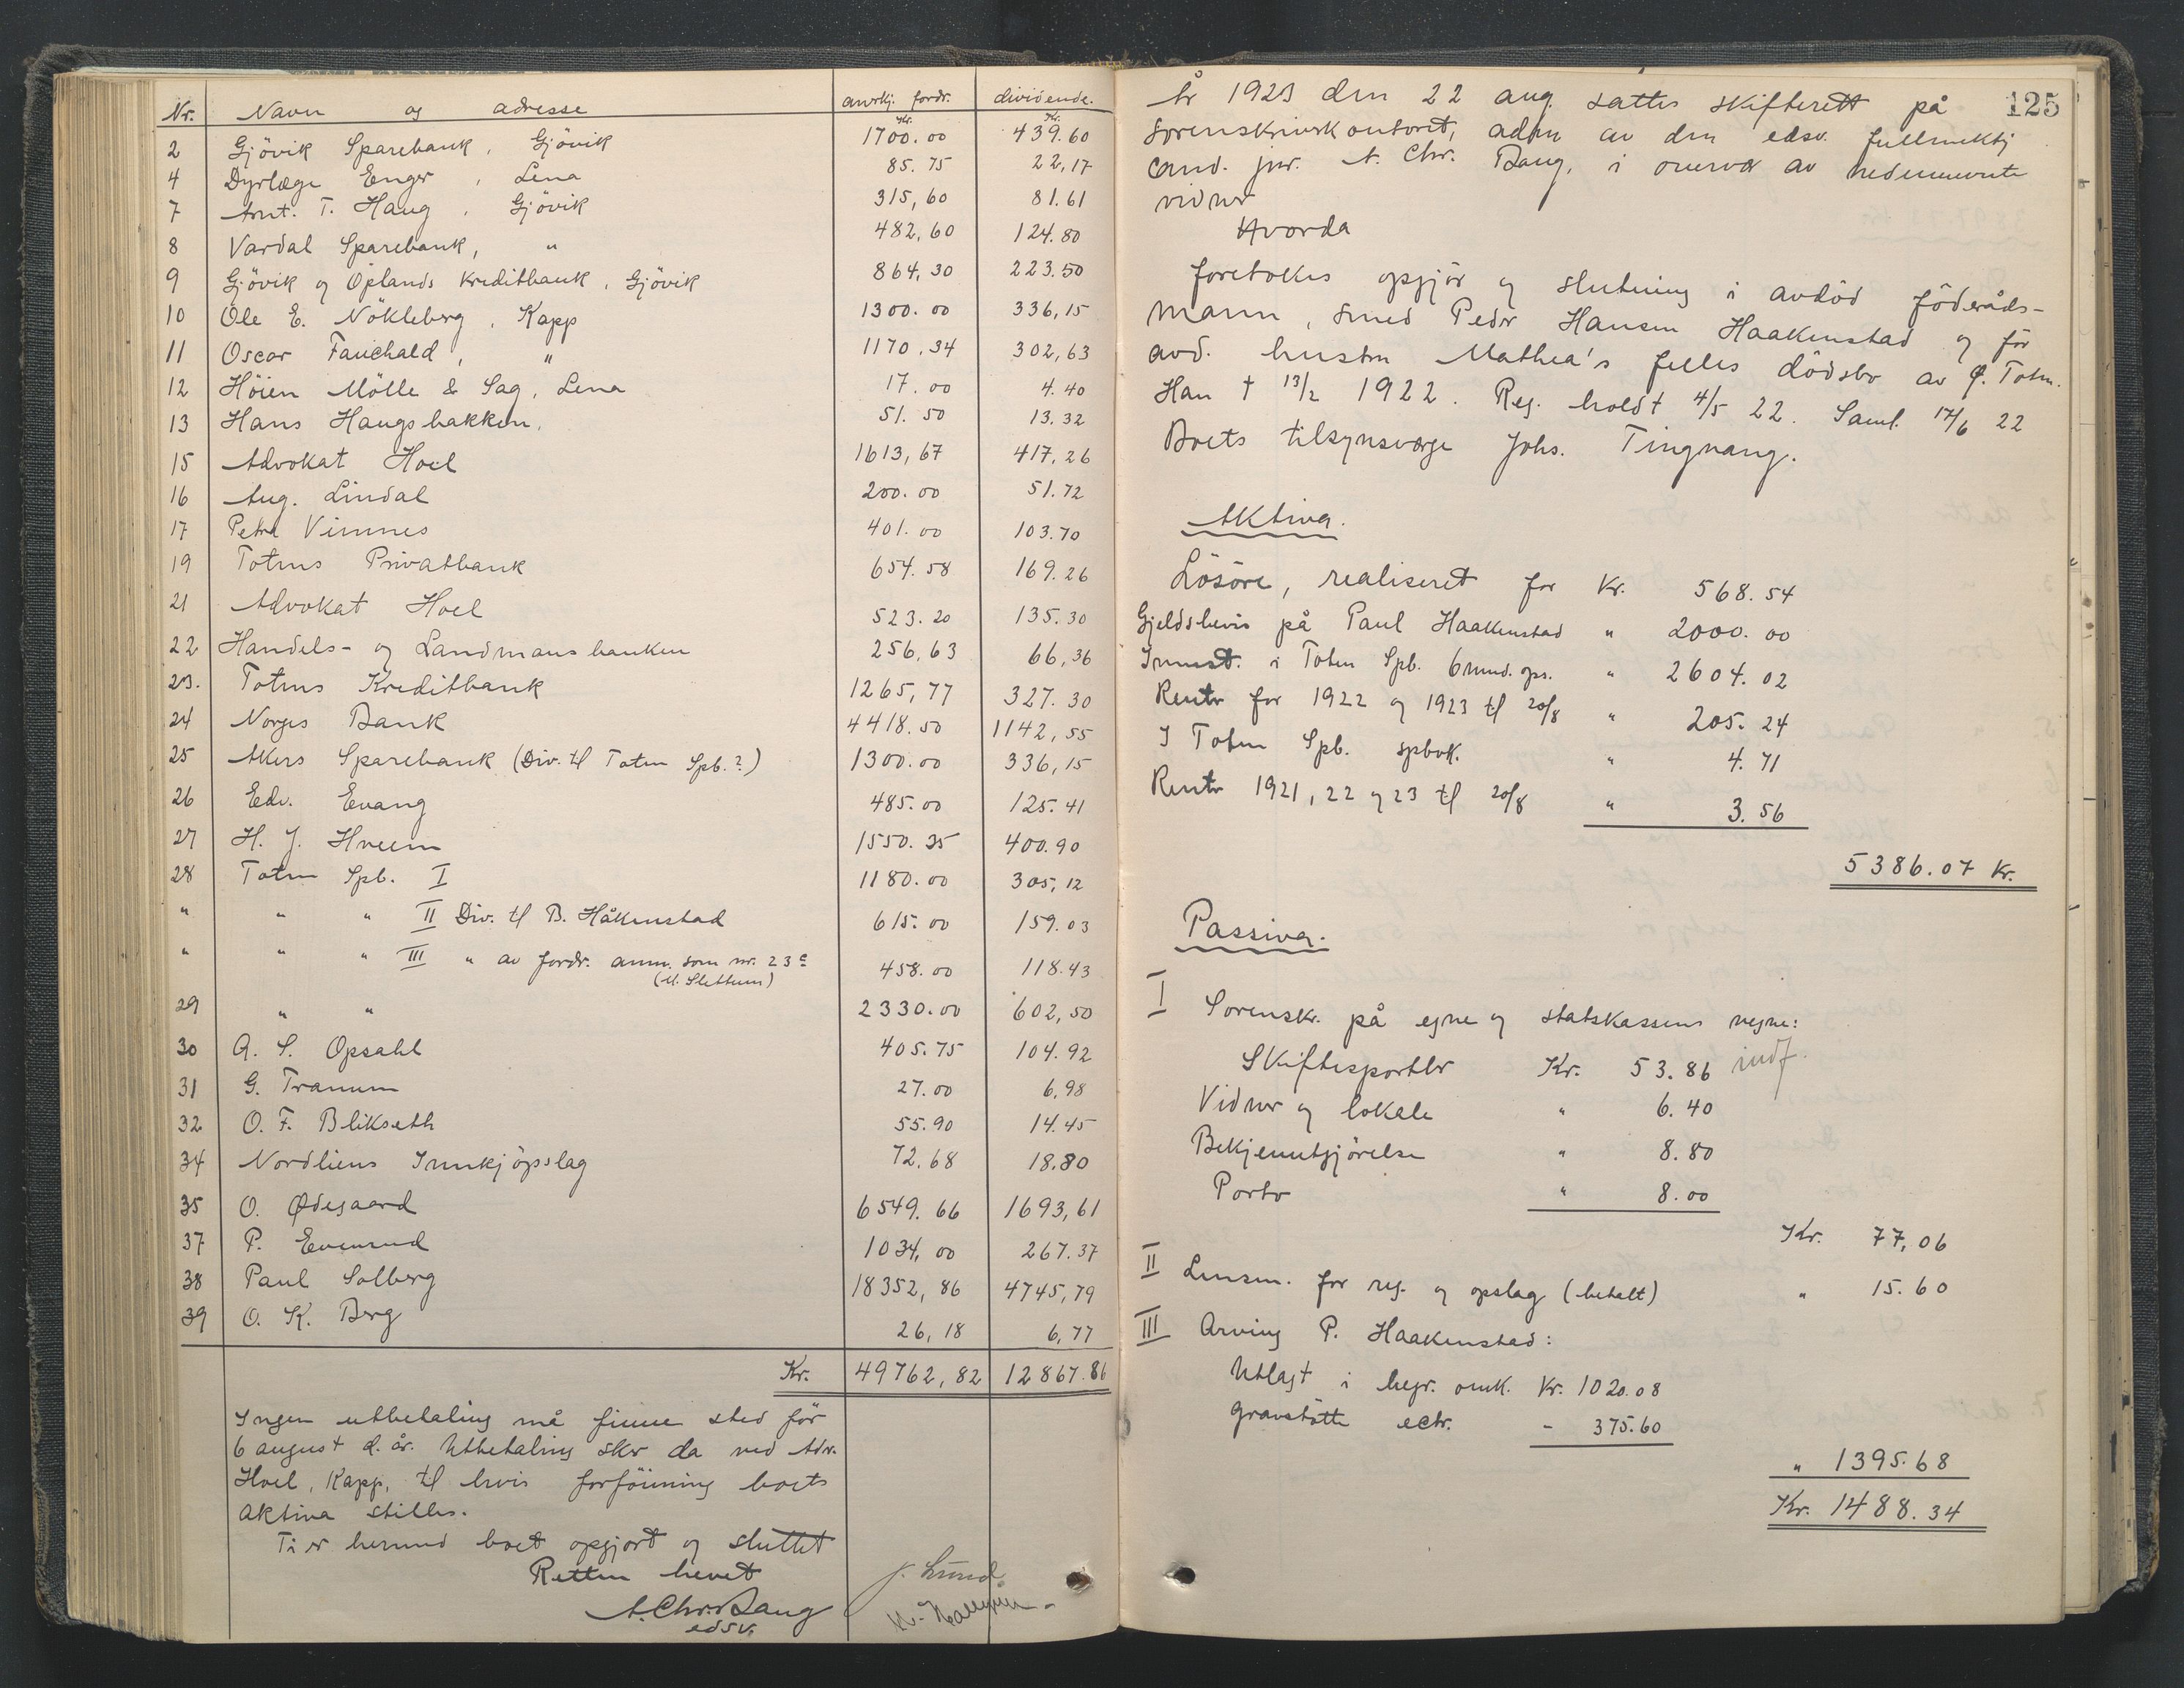 Nr. Navn og adresse anerkj. fordr. dividende.
Kr. Kr.
2 Gjövik Sparebank, Gjövik 1700.00 439.60
4 Dyrlæge Enger, Lena 85.75 22,17
7 Arnt. T. Haug, Gjövik 315,60 81.61
8 Vardal Sparebank, " 482,60 124.80
9 Gjövik og Oplands Kreditbank, Gjövik 864,30 223.50
10 Ole E. Nökleberg, Kapp 1300.00 336,15
11 Oscar Fauchald, " 1170,34 302,63
12 Höien Mölle & Sag, Lena 17.00 4.40
13 Hans Haugsbakken, 51.50 13.32
15 Advokat Hoel 1613,67 417,26
16 Aug. Lindal 200.00 51.72
17 Petra Vimnes 401.00 103.70
19 Totens Privatbank 654.58 169.26
21 Advokat Hoel 523.20 135.30
22 Handels- og Landmansbanken 256,63 66,36
23. Totens Kreditbank 1265,77 327.30
24 Norges Bank 4418.50 1142,55
25 Akers Sparebank (Div. til Toten Spb.?) 1300.00 336,15
26 Edv. Evang 485.00 125.41
27 H. J. Hveem 1550.35 400.90
28 Toten Spb. I 1180.00 305,12
" " " II Div. til B. Håkenstad 615.00 159.03
" " " III " av fordr. anm. som nr. 23c 458.00 118.43
(M. Slettum)
29 " " 2330.00 602,50
30 A. S. Opsahl 405.75 104.92
31 G. Tranum 27.00 6,98
32 O. F. Blikseth 55.90 14.45
34 Nordliens Innkjöpslag 72.68 18.80
35 O. Ødegaard 6549.66 1693,61
37 P. Evenrud 1034,00 267.37
38 Paul Solberg 18352,86 4745,79
39 O. K. Berg 26,18 6,77
Kr. 49762,82 12867.86
Ingen utbetaling må finne sted för
6 august d. år. Utbetaling sker da ved Adv.
Hoel, Kapp, til hvis forföining boets
aktiva stilles.
Ti er hermed boet opgjort og sluttet
Retten hevet
A. Chr. Bang J. Lund.
edsv.
125
År 1923 den 22 aug. sattes skifterett på
sorenskriverkontoret, adm av den edsv. fullmektig
cand. jur. A. Chr. Bang, i overvær av nedennevnte
vidner
Hvorda
foretokes opgjör og slutning i avdöd föderåds-
mann, smed Peder Hansen Haakenstad og för
avd. hustru Mathea's felles dödsbo av Ø. Toten.
Han † 13/2 1922. Reg. holdt 4/5 22. Saml. 17/6 22
Boets tilsynsværge Johs. Tingvang.
Aktiva.
Lösöre, realiseret for Kr. 568.54
Gjeldsbevis på Paul Haakenstad " 2000.00
Innest. i Toten Spb. 6 mnd. ops. " 2604.02
Renter for 1922 og 1923 til 20/8 " 205.24
I Toten Spb. spbok. " 4.71
Renter 1921, 22 og 23 til 20/8 " 3.56
5386.07 Kr.
Passiva.
I Sorenskr. på egne og statskassens vegne:
Skiftesportler Kr. 53.86 indf.
Vidner og lokale " 6.40
Bekjentgjörelse " 8.80
Porto " 8.00
Kr. 77,06
II Lensm. for reg. og opslag (betalt) " 15.60
III Arving P. Haakenstad:
Utlagt i begr. omk. Kr. 1020.08
gravstötte ectr. - 375.60
" 1395.68
Kr. 1488.34